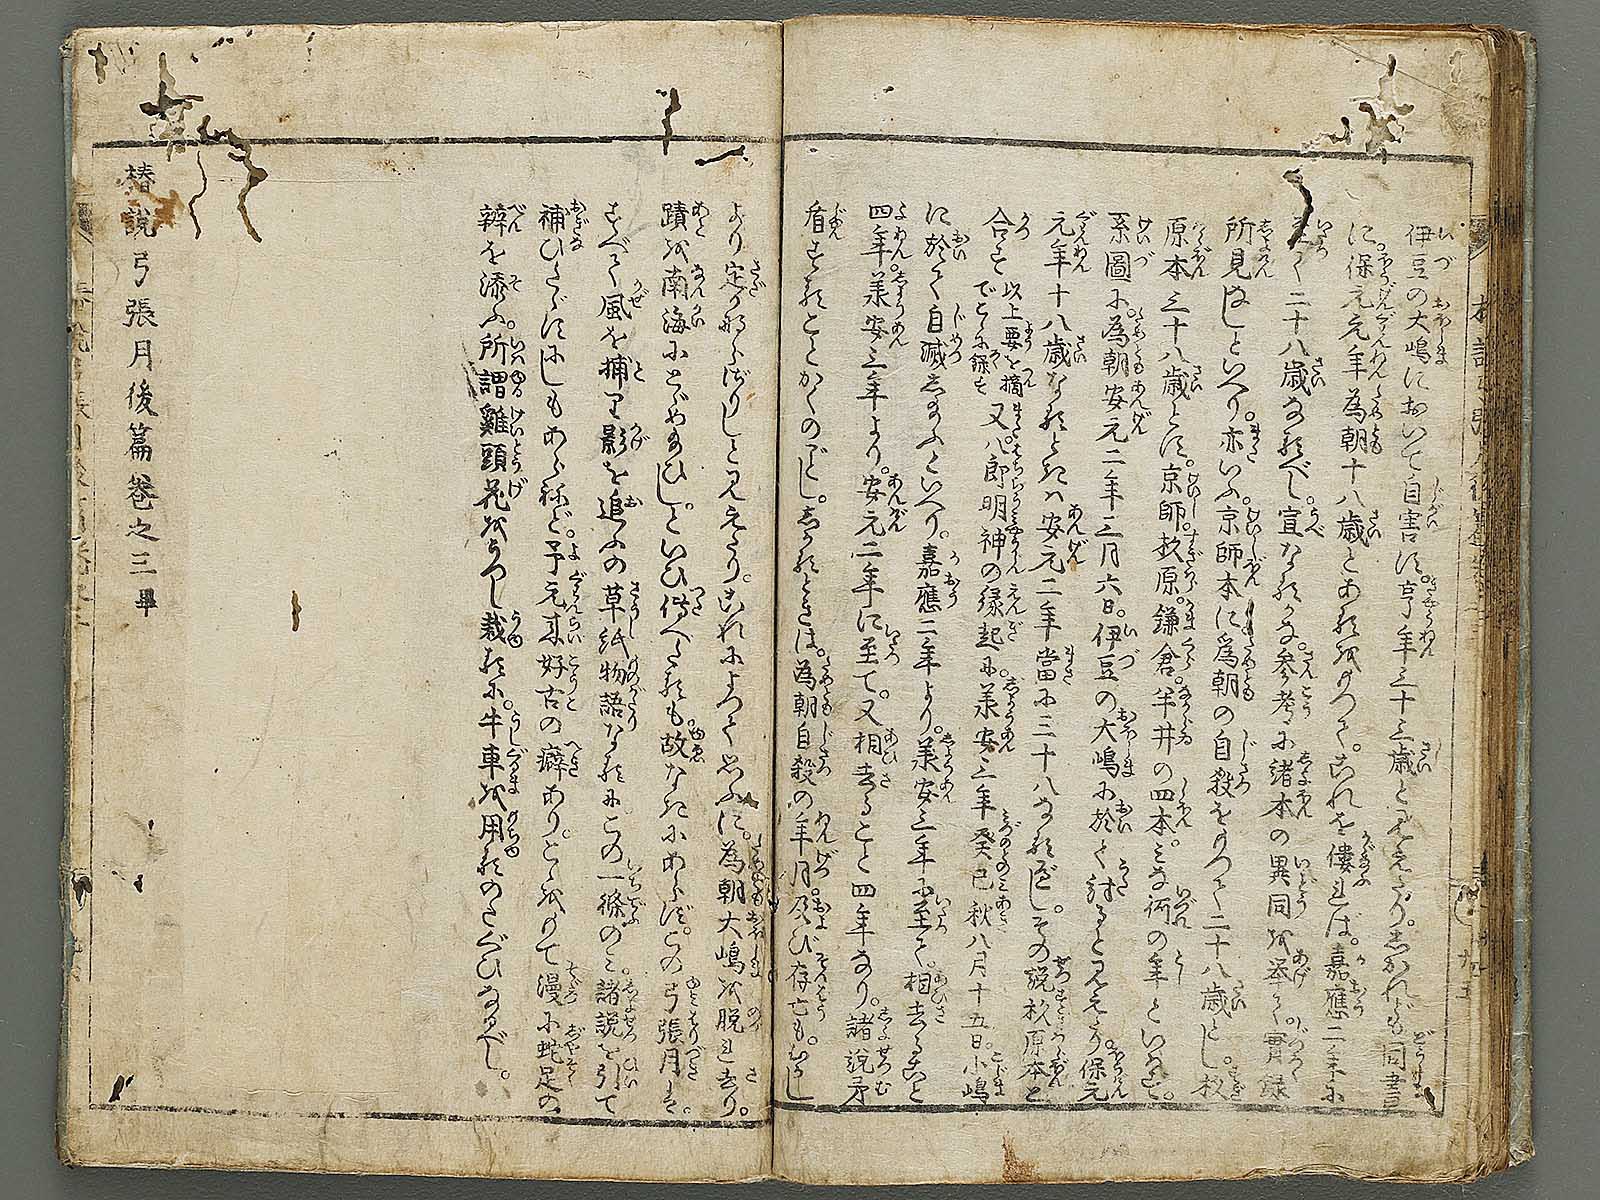 伊豆の大嶋において自害す。享年三十三歳と見えたり。しかれども同書
に保元元年為朝十八歳とあるをもつて。これを僂れば。嘉應二年に
至て二十八歳なるべし。宜なるかな。参考に諸本の異同を挙て實録
所見なしといへり。亦いふ京師本に為朝の自殺をもつて二十八歳とし。杉
原本三十八歳とす。京師。杉原。鎌倉。半井の四本。みな何の年といはず。
系圖に。為朝安元二年三月六日。伊豆の大嶋に於て討ると見えたり。保元
元年十八歳なるときは安元二年當に三十八なるべし。その説杉原本と
合す 以上要を摘でこゝに録す 又八郎明神の縁起に。承安三年癸巳秋八月十五日。小嶋
に於て自滅し玉ふといへり。嘉應二年より。承安三年に至て。相去ること
四年。承安三年より。安元二年に至て。又相去ること四年なり。諸説矛
盾することかくのごとし。しかるときは。為朝自殺の年月。及び存亡も。むかし
より定かならざりしと見えたり。これによつて思ふに。為朝大嶋を脱れ去り。
蹟を南海にとゞめ玉ひし。といひ傳へたるも。故なきにあらず。この弓張月は。
すべて風を捕り影を追ふの草紙物語なるにこの一條のミ諸説を引て
補ひたゞすにしもあらねど。予元来好古の癖あり。こゝをもて漫に蛇足の
辨を添ふ。所謂雞頭花をうつし栽るに。牛車を用るのたぐひなるべし。
椿説弓張月後篇巻之三畢